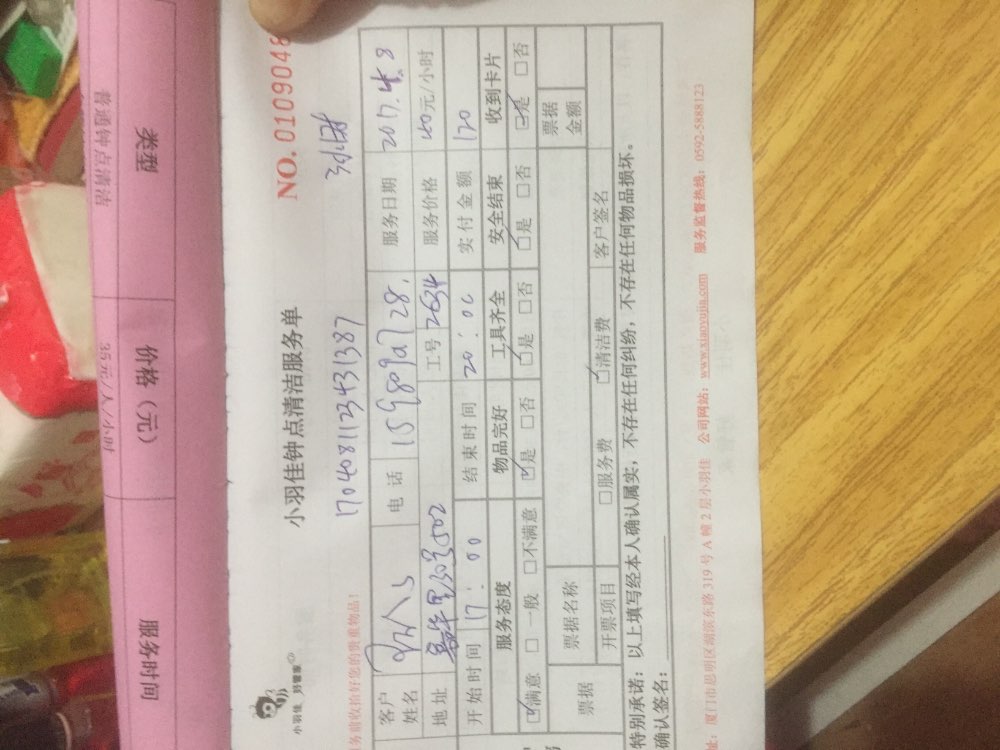 类型
价格（元）
服务时间
普通钟点清洁
35元/人/小时
小羽佳 好管家
小羽佳钟点清洁服务单
NO. 0109048
务前收拾好您的贵重物品！
1704081123431387
客户姓名
电话 15980907728.
服务日期 2017.4.8
地址
工号 2634
服务价格 40元/小时
开始时间 17:00 结束时间 20:00 实付金额 120
服务态度 物品完好 工具齐全 安全结束 收到卡片
☑满意 □一般 □不满意 ☑是 □否 ☑是 □否 ☑是 □否 ☑是 □否
票据 票据名称 票据金额
开票项目 □服务费 ☑清洁费 客户签名
特别承诺：以上填写经本人确认属实，不存在任何纠纷，不存在任何物品损坏。
确认签名：
址：厦门市思明区湖滨东路319号A幢2层小羽佳 公司网站：www.xiaoyujia.com 服务监督热线：0592-5888123